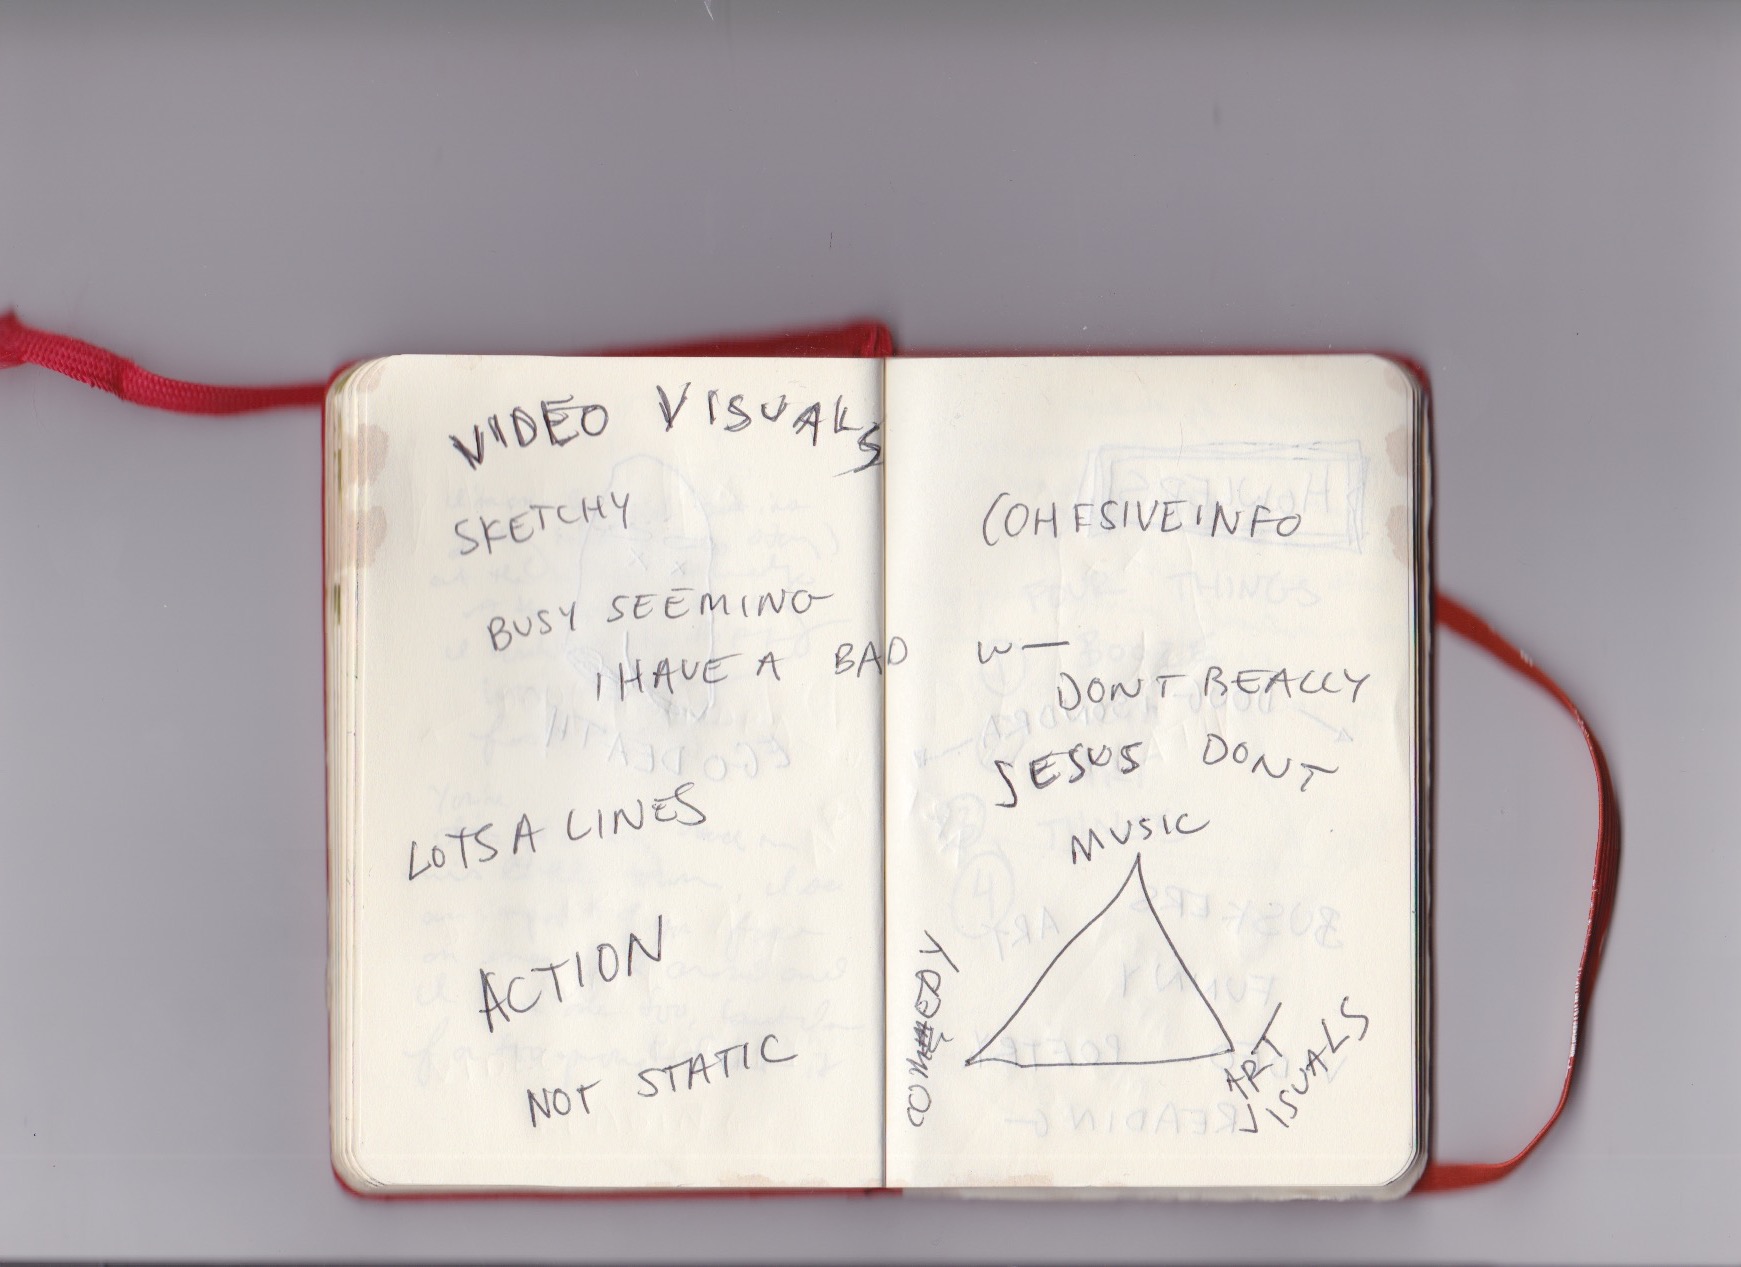 VIDEO VISUALS
SKETCHY
BUSY SEEMING
I HAVE A BAD
LOTS A LINES
ACTION
NOT STATIC
COHESIVE INFO
W—
DONT REALLY
JESUS DONT
MUSIC
COMEDY
ART
VISUALS